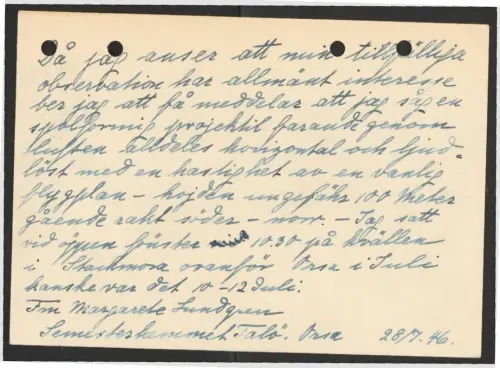 Då jag anser att min tillfälliga
observation har allmänt interesse
ber jag att få meddelar att jag såg en
spolformig projektil farande genom
luften alldeles horizontal och ljud=
löst med en hastighet av en vanlig
flygplan - höjden ungefähr 100 Meter
gående rakt söder - norr. - Jag satt
vid öppen fönster 10.30 på kvällen
i Stackmora ovanför Orsa i Juli
kanske var det 10-12 Juli.
Frn Margarete Lundgren
Semesterhemmet Talö. Orsa 28/7. 46.